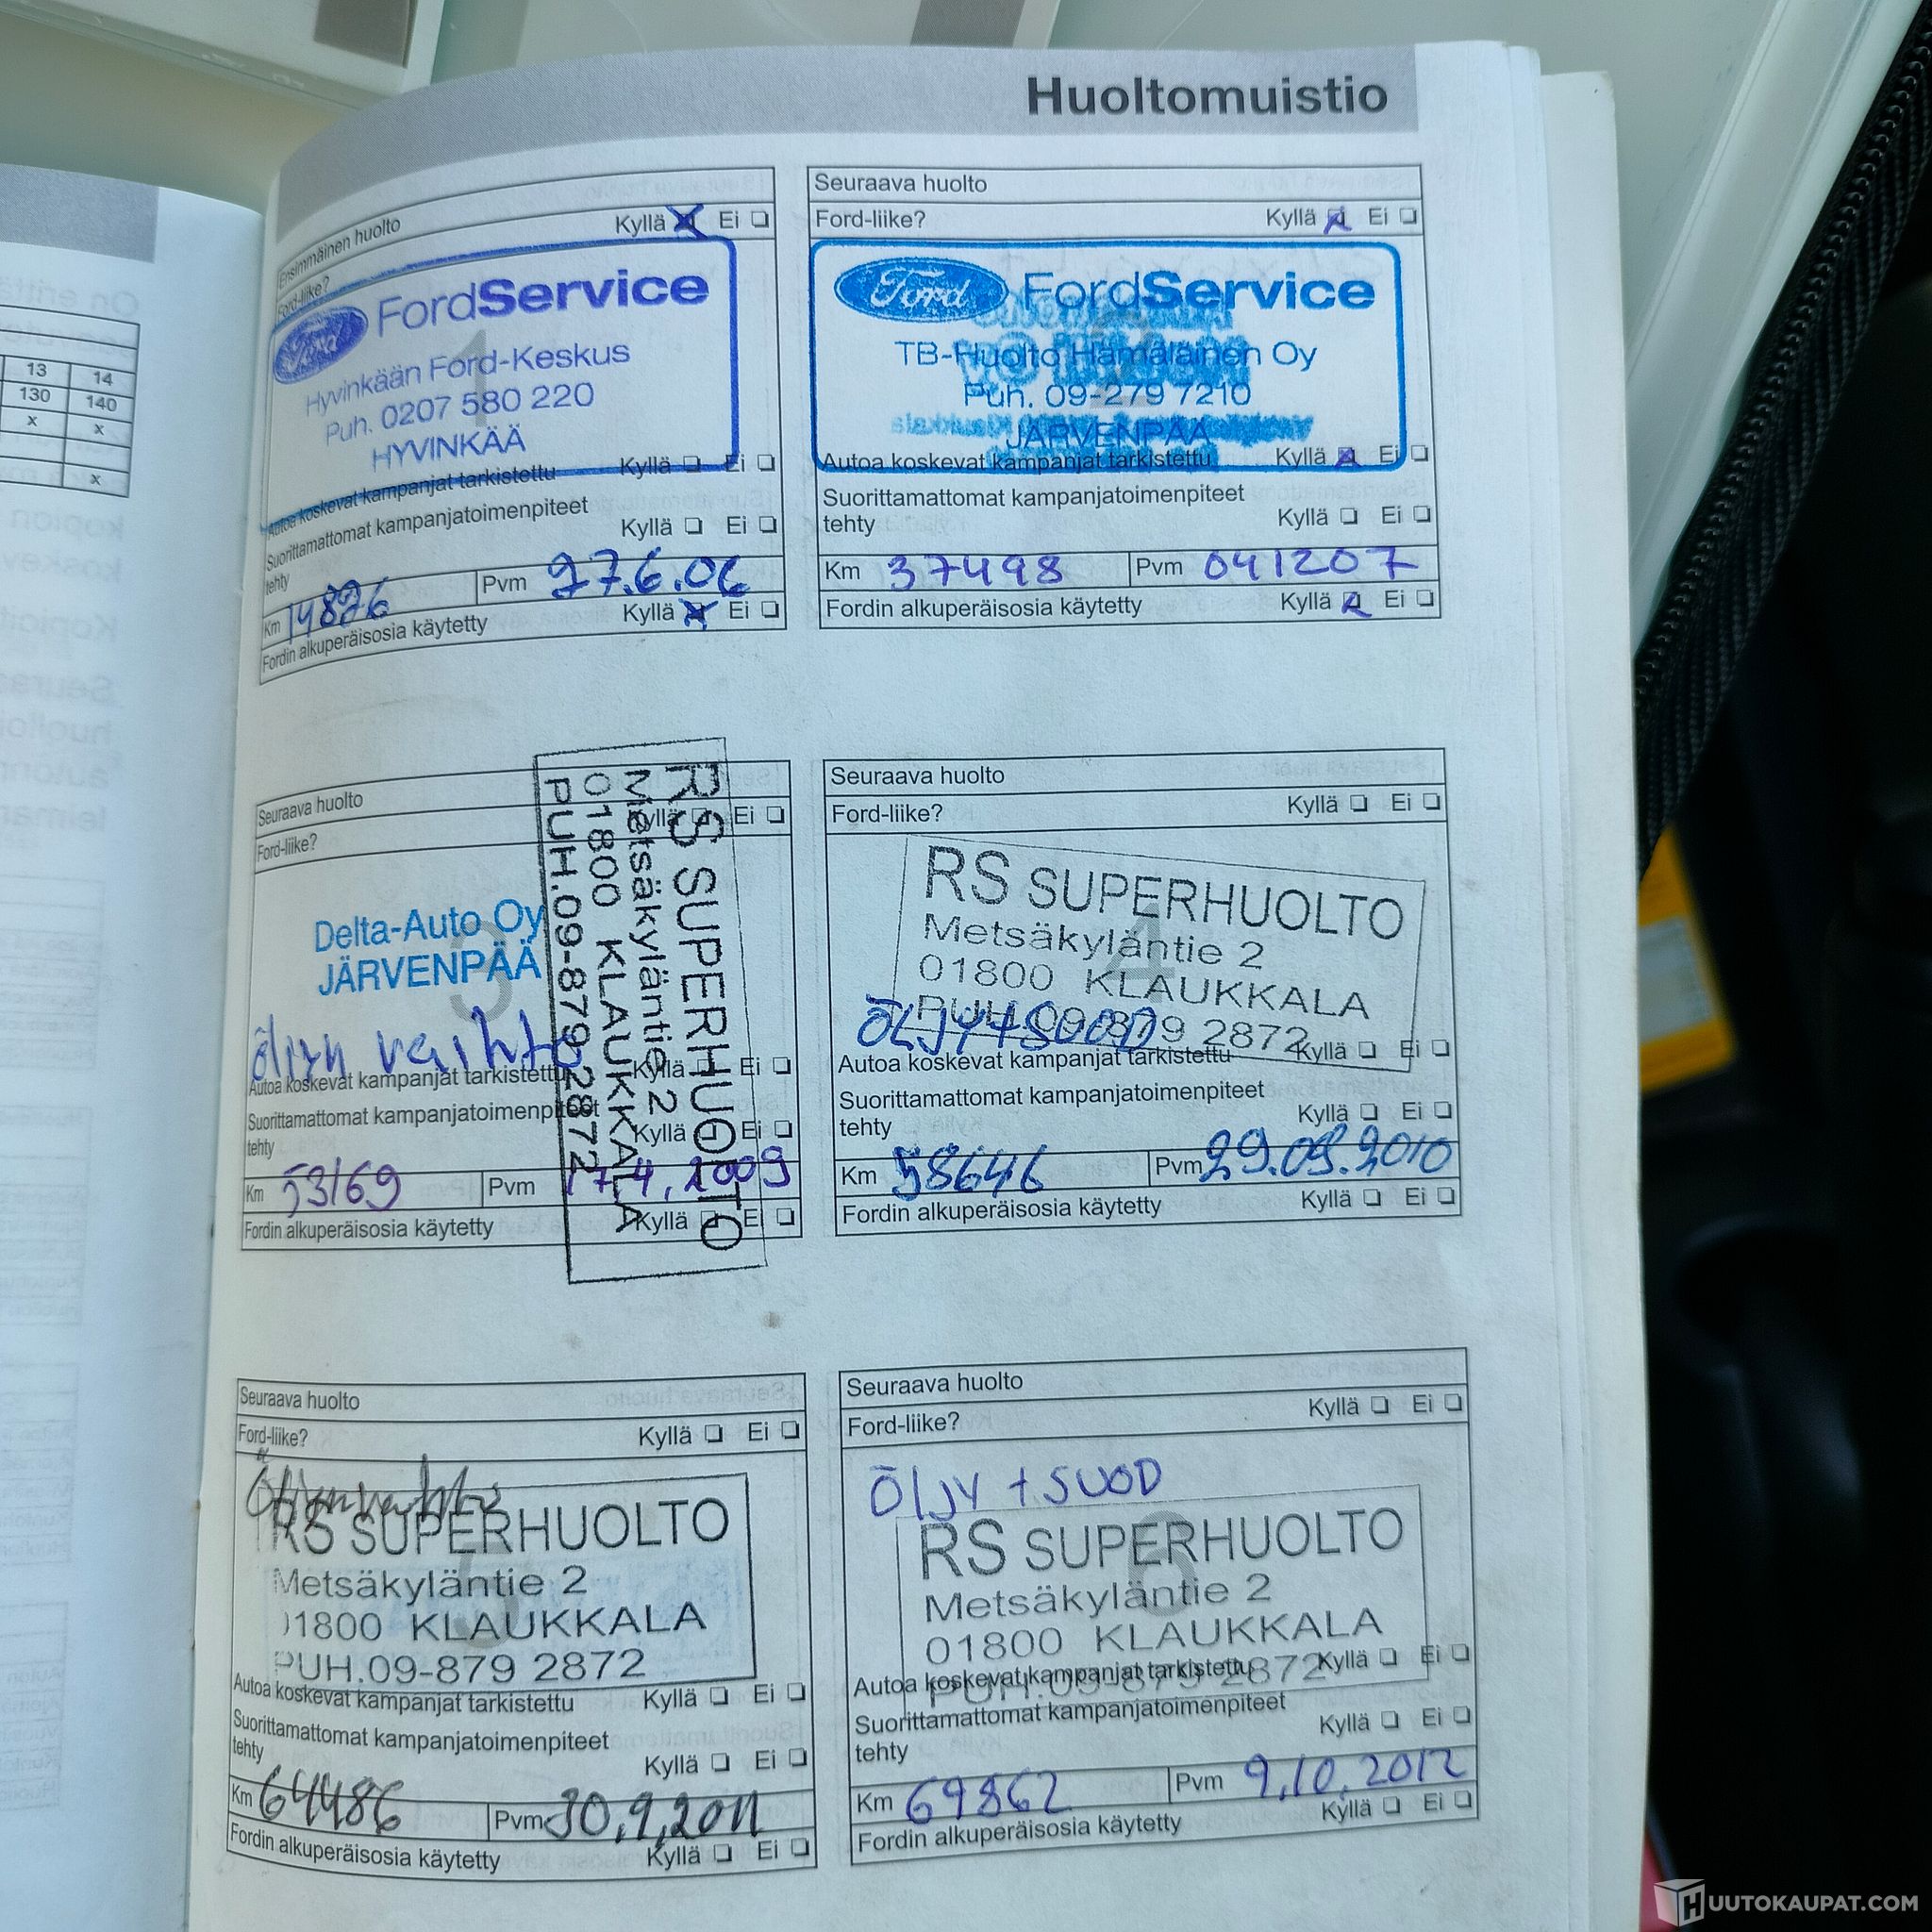 Huoltomuistio
13 14
130 140
x x
x
Ensimmäinen huolto
Ford-liike? Kyllä Ei
Ford FordService
1
Hyvinkään Ford-Keskus
Puh. 0207 580 220
HYVINKÄÄ
Autoa koskevat kampanjat tarkistettu Kyllä Ei
Suorittamattomat kampanjatoimenpiteet
tehty Kyllä Ei
Km 14826 Pvm 27.6.06
Fordin alkuperäisosia käytetty Kyllä Ei
Seuraava huolto
Ford-liike? Kyllä Ei
Ford FordService
TB-Huolto Hämäläinen Oy
Puh. 09-279 7210
JÄRVENPÄÄ
Autoa koskevat kampanjat tarkistettu Kyllä Ei
Suorittamattomat kampanjatoimenpiteet
tehty Kyllä Ei
Km 37498 Pvm 041207
Fordin alkuperäisosia käytetty Kyllä Ei
Seuraava huolto
Ford-liike? Kyllä Ei
3
Delta-Auto Oy
JÄRVENPÄÄ
öljyn vaihto
RS SUPERHUOLTO
Metsäkyläntie 2
01800 KLAUKKALA
PUH.09-879 2872
Autoa koskevat kampanjat tarkistettu Kyllä Ei
Suorittamattomat kampanjatoimenpiteet
tehty Kyllä Ei
Km 53169 Pvm 17.4.2009
Fordin alkuperäisosia käytetty Kyllä Ei
Seuraava huolto
Ford-liike? Kyllä Ei
4
RS SUPERHUOLTO
Metsäkyläntie 2
01800 KLAUKKALA
PUH.09-879 2872
ÖLJY+SUOD
Autoa koskevat kampanjat tarkistettu Kyllä Ei
Suorittamattomat kampanjatoimenpiteet
tehty Kyllä Ei
Km 58646 Pvm 29.09.2010
Fordin alkuperäisosia käytetty Kyllä Ei
Seuraava huolto
Ford-liike? Kyllä Ei
Öljynvaihto
5
RS SUPERHUOLTO
Metsäkyläntie 2
01800 KLAUKKALA
PUH.09-879 2872
Autoa koskevat kampanjat tarkistettu Kyllä Ei
Suorittamattomat kampanjatoimenpiteet
tehty Kyllä Ei
Km 64486 Pvm 30.9.2011
Fordin alkuperäisosia käytetty Kyllä Ei
Seuraava huolto
Ford-liike? Kyllä Ei
ÖLJY +SUOD
6
RS SUPERHUOLTO
Metsäkyläntie 2
01800 KLAUKKALA
PUH.09-879 2872
Autoa koskevat kampanjat tarkistettu Kyllä Ei
Suorittamattomat kampanjatoimenpiteet
tehty Kyllä Ei
Km 69862 Pvm 9.10.2012
Fordin alkuperäisosia käytetty Kyllä Ei
HUUTOKAUPAT.COM